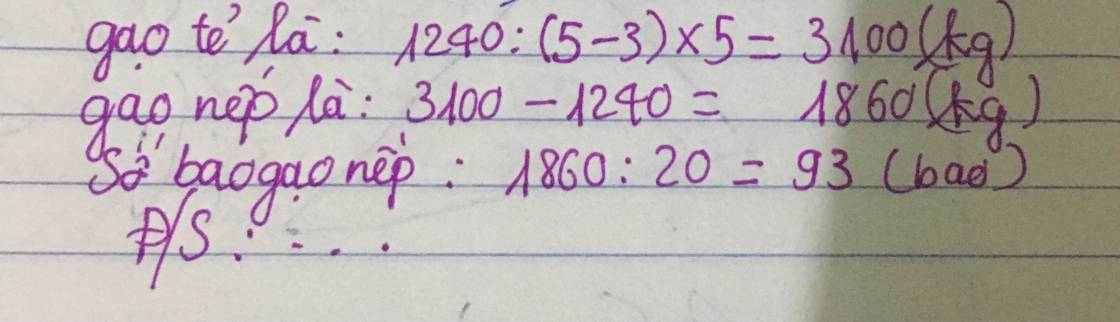 gạo tẻ là: 1240:(5-3)×5= 3100(kg)
gạo nếp là: 3100-1240= 1860(kg)
Số bao gạo nếp : 1860:20 = 93 (bao)
Đ/S : ...